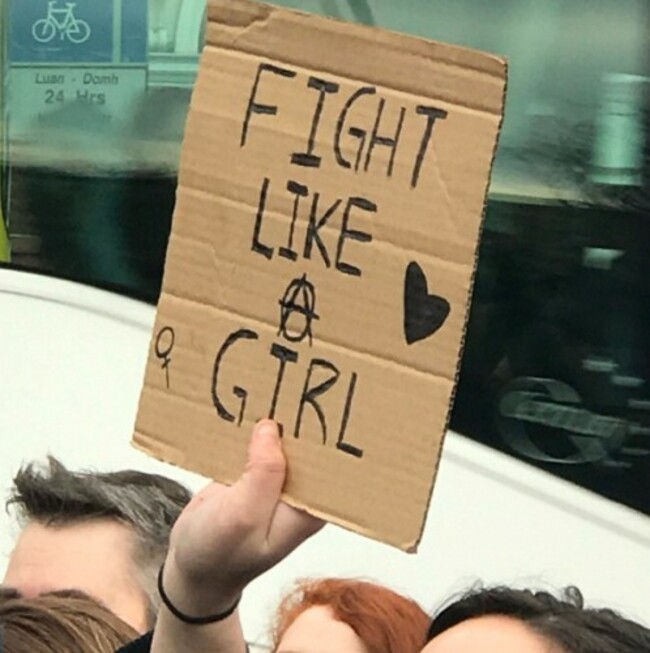 Luan - Domh
24 Hrs
FIGHT
LIKE
A
GIRL